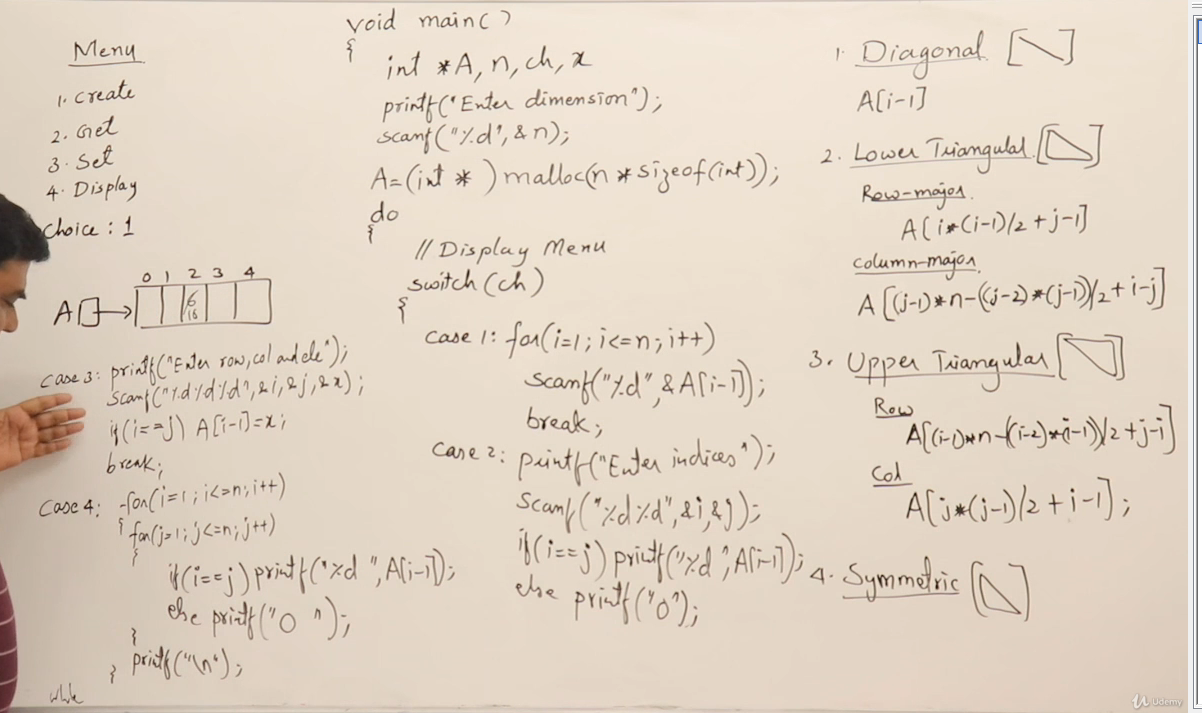 Menu
1. Create
2. Get
3. Set
4. Display
Choice : 1
0 1 2 3 4
A
6
18
Case 3: printf("Enter row,col and ele");
scanf("%d%d%d",&i,&j,&x);
if(i==j) A[i-1]=x;
break;
Case 4: for(i=1;i<=n;i++)
{ for(j=1;j<=n;j++)
{
if(i==j) printf("%d ",A[i-1]);
else printf("0 ");
}
printf("\n");
}
while
void main()
{
int *A, n, ch, x
printf("Enter dimension");
scanf("%d",&n);
A=(int *) malloc(n*sizeof(int));
do
{
// Display Menu
switch(ch)
{
case 1: for(i=1;i<=n;i++)
scanf("%d",&A[i-1]);
break;
case 2: printf("Enter indices");
scanf("%d%d",&i,&j);
if(i==j) printf("%d",A[i-1]);
else printf("0");
1. Diagonal
A[i-1]
2. Lower Triangular
Row-major
A[i*(i-1)/2+j-1]
column-major
A[(j-1)*n-((j-2)*(j-1))/2+i-j]
3. Upper Triangular
Row
A[(i-1)*n-(i-2)*(i-1))/2+j-i]
Col
A[j*(j-1)/2+i-1];
4. Symmetric
Udemy